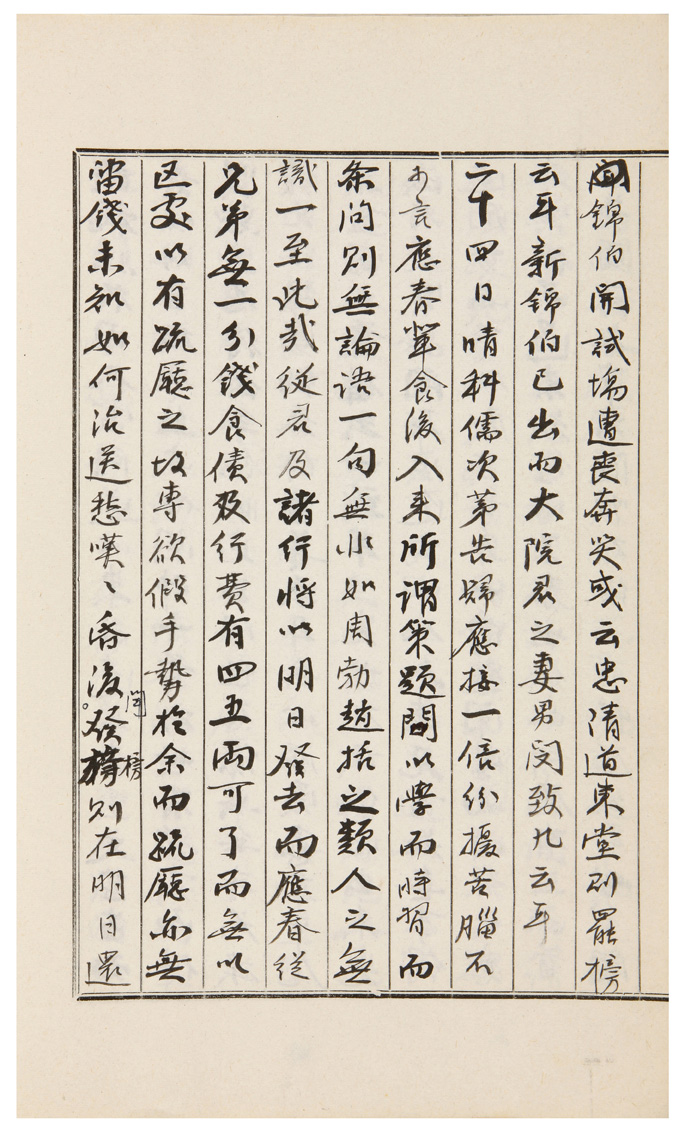 聞錦伯開試塲遭喪奔哭或云忠清道東堂則罷榜
云耳新錦伯已出而大院君之妻男閔致九云耳
二十四日晴科儒次第告歸應接一倍紛擾苦腦不
可言應春輩食後入来所謂策題聞以學而時習而
条問則無論语一句無此如周勃趙括之類人之無
識一至此哉從君及諸行將以明日發去而應春從
兄弟無一分錢食債及行費有四五兩可了而無以
区處以有疏廳之故專欲假手勢於余而疏廳亦無
留錢未知如何治送愁嘆〻昏後聞發榜則在明日還